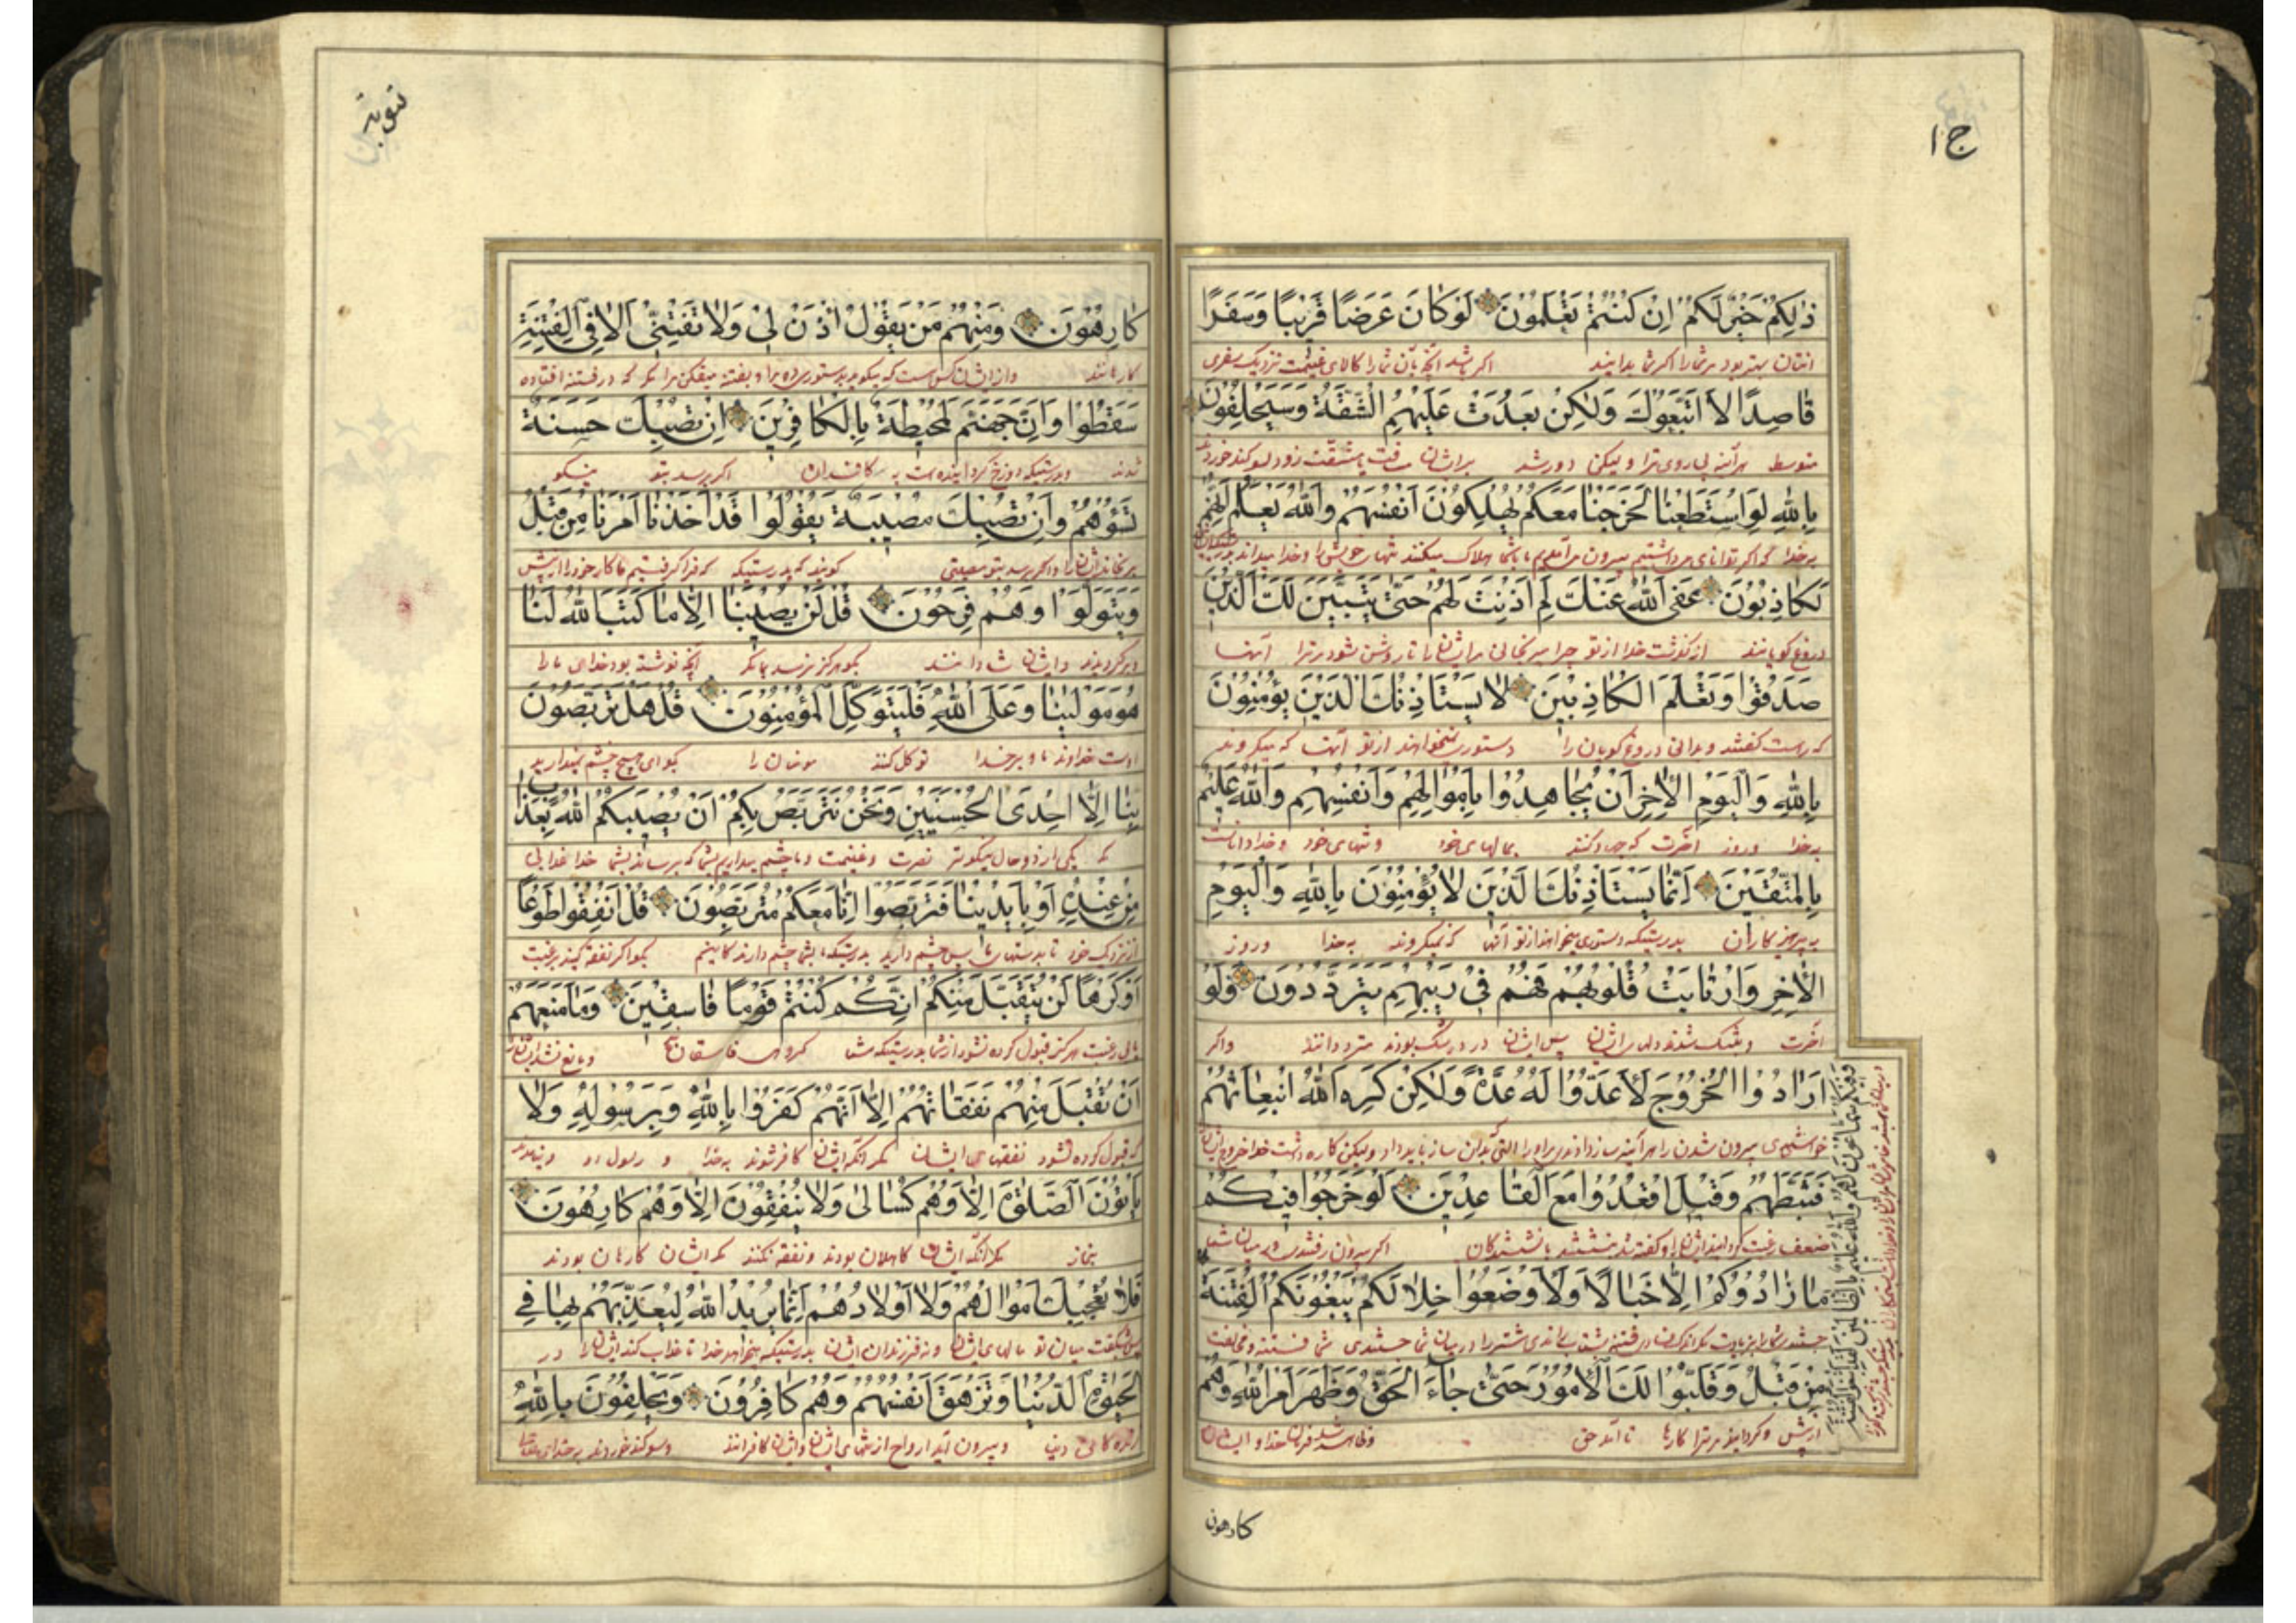 ج ١
ذٰلِكُمْ خَيْرٌ لَكُمْ اِنْ كُنْتُمْ تَعْلَمُونَ لَوْ كَانَ عَرَضًا قَرِيبًا وَسَفَرًا
بهتر بود مر شما را اکر شما بدانید اکر باشد آنچه بآن شما را کالای غنیمت نزدیک سفری
قَاصِدًا لَاَتَّبَعُوكَ وَلٰكِنْ بَعُدَتْ عَلَيْهِمُ الشُّقَّةُ وَسَيَحْلِفُونَ
متوسط هر آینه پی روی ترا ولیکن دور شد بر ایشان مسافت با مشقت زود سوکند خورند
بِاللهِ لَوِ اسْتَطَعْنَا لَخَرَجْنَا مَعَكُمْ يُهْلِكُونَ اَنْفُسَهُمْ وَاللهُ يَعْلَمُ اِنَّهُمْ
بخدا که اکر توانای میداشتیم بیرون می آمدیم با شما هلاک میکنند تنهای خویش را وخدا میداند
لَكَاذِبُونَ عَفَى اللهُ عَنْكَ لِمَ اَذِنْتَ لَهُمْ حَتّٰى يَتَبَيَّنَ لَكَ الَّذِينَ
دروغ کویانند در کذشت خدا از تو چرا ایشان را تا روشن شود مر ترا آنها
صَدَقُوا وَتَعْلَمَ الْكَاذِبِينَ لَا يَسْتَاْذِنُكَ الَّذِينَ يُؤْمِنُونَ
که راست کفتند وبدانی دروغ کویان را دستوری نمیخواهند از تو آنها که میکروند
بِاللهِ وَالْيَوْمِ الْاٰخِرِ اَنْ يُجَاهِدُوا بِاَمْوَالِهِمْ وَاَنْفُسِهِمْ وَاللهُ عَلِيمٌ
بخدا وروز آخرت که جهاد کنند بمالهای خود وتنهای خود وخدا داناست
بِالْمُتَّقِينَ اِنَّمَا يَسْتَاْذِنُكَ الَّذِينَ لَا يُؤْمِنُونَ بِاللهِ وَالْيَوْمِ
به پرهیزکاران بدرستیکه دستوری میخواهند از تو آنها که نمیکروند بخدا وروز
الْاٰخِرِ وَارْتَابَتْ قُلُوبُهُمْ فَهُمْ فِي رَيْبِهِمْ يَتَرَدَّدُونَ وَلَوْ
آخرت وبشک شدند دلهای ایشان پس ایشان در شک بودند مترددانند واکر
اَرَادُوا الْخُرُوجَ لَاَعَدُّوا لَهُ عُدَّةً وَلٰكِنْ كَرِهَ اللهُ انْبِعَاثَهُمْ
فَثَبَّطَهُمْ وَقِيلَ اقْعُدُوا مَعَ الْقَاعِدِينَ لَوْ خَرَجُوا فِيكُمْ
اکر بیرون رفتندی در میان شما
مَا زَادُوكُمْ اِلَّا خَبَالًا وَلَاَوْضَعُوا خِلَالَكُمْ يَبْغُونَكُمُ الْفِتْنَةَ
وَفِيكُمْ سَمَّاعُونَ لَهُمْ وَاللهُ عَلِيمٌ بِالظَّالِمِينَ لَقَدِ ابْتَغَوُا الْفِتْنَةَ
مِنْ قَبْلُ وَقَلَّبُوا لَكَ الْاُمُورَ حَتّٰى جَاءَ الْحَقُّ وَظَهَرَ اَمْرُ اللهِ وَهُمْ
از پیش وکردانیدند مر ترا کارها تا آمد حق وظاهر شد فرمان خدا وایشان
کارهون
توبه
كَارِهُونَ وَمِنْهُمْ مَنْ يَقُولُ ائْذَنْ لِي وَلَا تَفْتِنِّي اَلَا فِي الْفِتْنَةِ
کارهانند واز ایشان کس است که میکوید دستوری ده مرا وبفتنه میفکن مرا که در فتنه افتاده
سَقَطُوا وَاِنَّ جَهَنَّمَ لَمُحِيطَةٌ بِالْكَافِرِينَ اِنْ تُصِبْكَ حَسَنَةٌ
شدند وبدرستیکه دوزخ به کافران اکر برسد بتو نیکو
تَسُؤْهُمْ وَاِنْ تُصِبْكَ مُصِيبَةٌ يَقُولُوا قَدْ اَخَذْنَا اَمْرَنَا مِنْ قَبْلُ
واکر برسد بتو مصیبتی کویند که بدرستیکه فرا کرفتیم ما کار خود را از پیش
وَيَتَوَلَّوْا وَهُمْ فَرِحُونَ قُلْ لَنْ يُصِيبَنَا اِلَّا مَا كَتَبَ اللهُ لَنَا
وایشان شادانند بکو هرکز نرسد بما مکر آنچه نوشته بود خدای ما را
هُوَ مَوْلٰينَا وَعَلَى اللهِ فَلْيَتَوَكَّلِ الْمُؤْمِنُونَ قُلْ هَلْ تَرَبَّصُونَ
اوست خداوند ما وبر خدا توکل کنند مومنان را بکو ای هیچ چشم میدارید
بِنَا اِلَّا اِحْدَى الْحُسْنَيَيْنِ وَنَحْنُ نَتَرَبَّصُ بِكُمْ اَنْ يُصِيبَكُمُ اللهُ بِعَذَابٍ
که یکی از دو حال نیکوتر نصرت وغنیمت وما چشم میداریم بشما که برساند بشما خدا عذابی
مِنْ عِنْدِهِ اَوْ بِاَيْدِينَا فَتَرَبَّصُوا اِنَّا مَعَكُمْ مُتَرَبِّصُونَ قُلْ اَنْفِقُوا طَوْعًا
از نزدیک خود یا بدستهای ما پس چشم دارید بدرستیکه با شما چشم دارندکانیم بکو اکر نفقه کنید برغبت
اَوْ كَرْهًا لَنْ يُتَقَبَّلَ مِنْكُمْ اِنَّكُمْ كُنْتُمْ قَوْمًا فَاسِقِينَ وَمَا مَنَعَهُمْ
یا بی رغبت هرکز قبول کرده نشود از شما بدرستیکه شما کروهی فاسقان
اَنْ تُقْبَلَ مِنْهُمْ نَفَقَاتُهُمْ اِلَّا اَنَّهُمْ كَفَرُوا بِاللهِ وَبِرَسُولِهِ وَلَا
که قبول کرده نشود نفقهای ایشان مکر آنکه ایشان کافر شوند بخدا و رسول او
يَاْتُونَ الصَّلٰوةَ اِلَّا وَهُمْ كُسَالٰى وَلَا يُنْفِقُونَ اِلَّا وَهُمْ كَارِهُونَ
بنماز مکر آنکه ایشان کاهلان بودند ونفقه نکنند مکر ایشان کارهان بودند
فَلَا تُعْجِبْكَ اَمْوَالُهُمْ وَلَا اَوْلَادُهُمْ اِنَّمَا يُرِيدُ اللهُ لِيُعَذِّبَهُمْ بِهَا فِي
مالهای ایشان ونه فرزندان ایشان بدرستیکه میخواهد خدا تا عذاب کند ایشان را در
الْحَيٰوةِ الدُّنْيَا وَتَزْهَقَ اَنْفُسُهُمْ وَهُمْ كَافِرُونَ وَيَحْلِفُونَ بِاللهِ
زندکانی دنیا وبیرون آید ارواح از تنهای ایشان وایشان کافرانند وسوکند خوردند بخدای